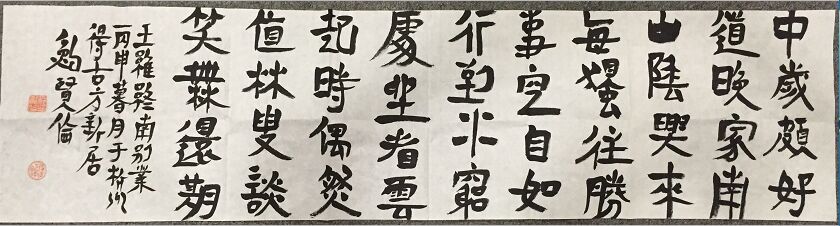 中歲頗好
道晚家南
山陲興來
每獨往勝
事空自如
行到水窮
處坐看雲
起時偶然
值林叟談
笑無還期
王維終南別業
丙申暮月于杭州
得吉方新居
賢倫